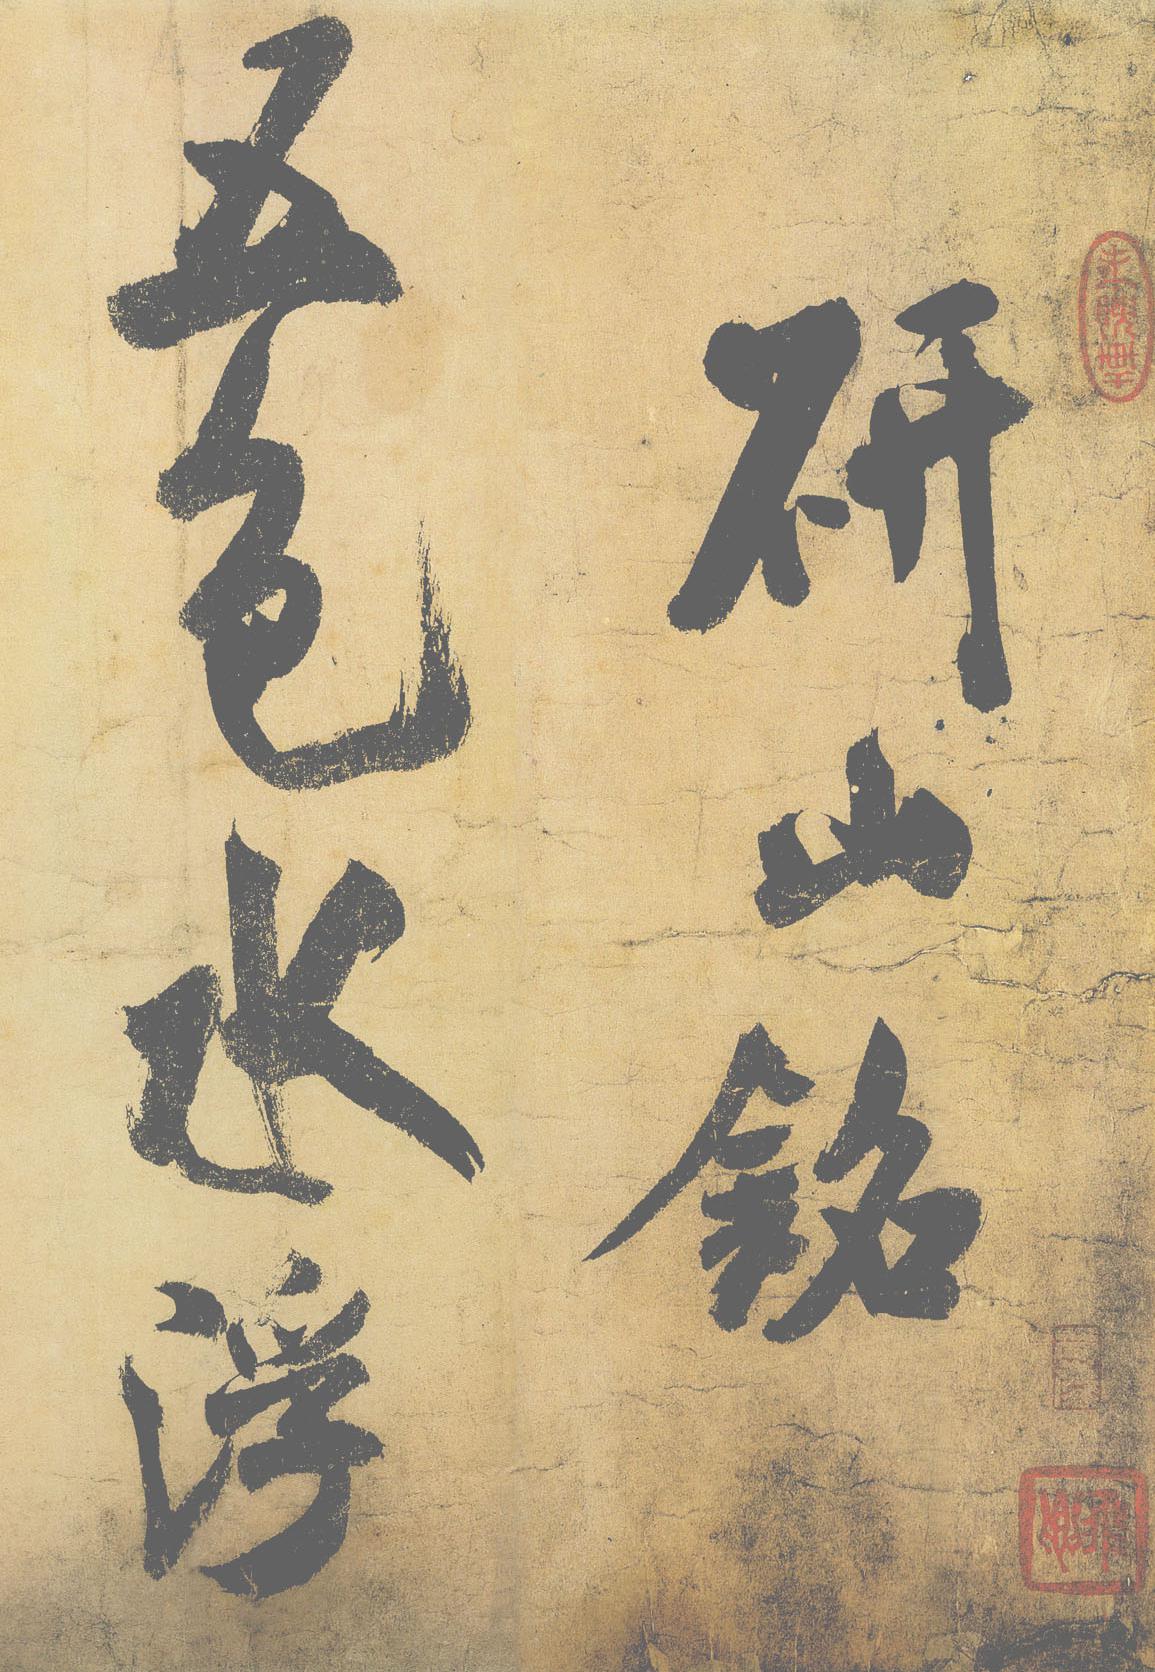 研山銘
五色水浮